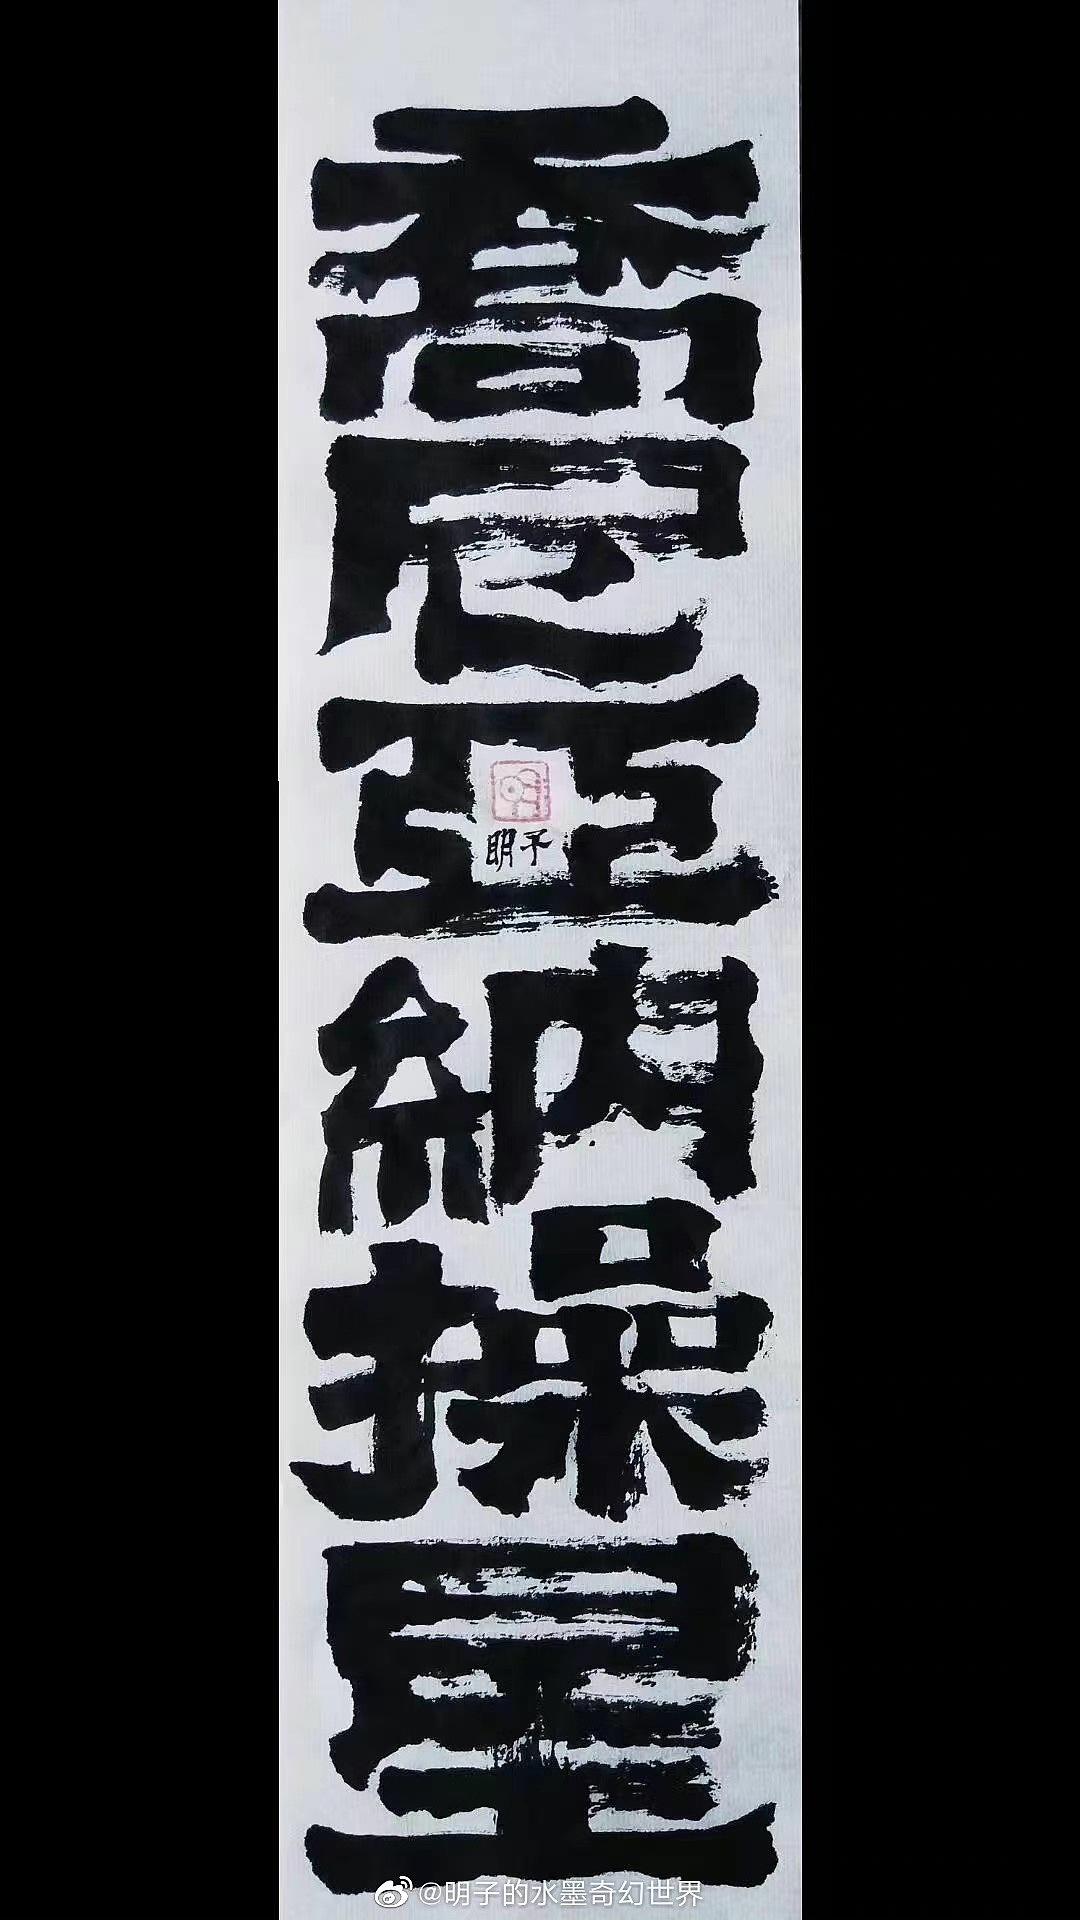 喬尼亞納操星
明子
@明子的水墨奇幻世界